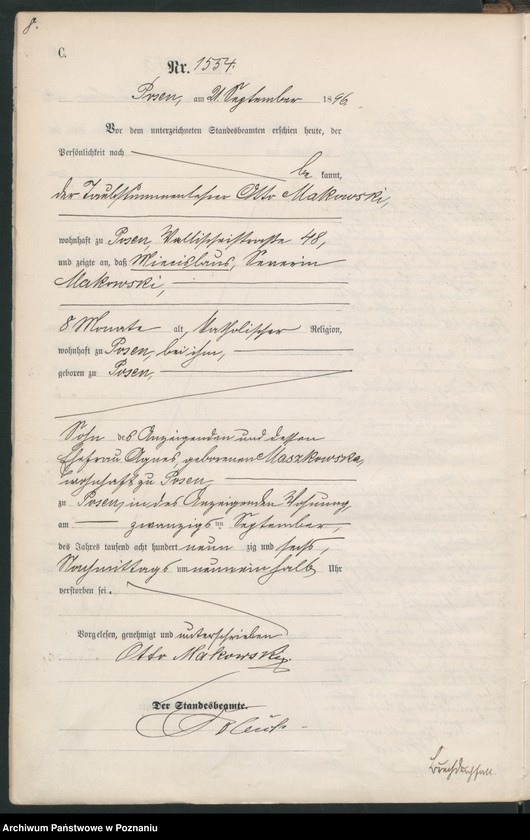 8.
C.
Nr. 1554.
Posen, am 21. September 1896.
Vor dem unterzeichneten Standesbeamten erschien heute, der
Persönlichkeit nach
be kannt,
der Taubstummenlehrer Otto Makowski,
wohnhaft zu Posen, Wallischeistraße 48,
und zeigte an, daß Miecislaus, Severin
Makowski,
8 Monate alt, katholischer Religion,
wohnhaft zu Posen, bei ihm,
geboren zu Posen,
Sohn des Anzeigenden und dessen
Ehefrau Agnes, geborenen Maszkowska,
wohnhaft zu Posen
zu Posen, in des Anzeigenden Wohnung,
am zwanzigsten September,
des Jahres tausend acht hundert neun zig und sechs,
Nachmittags um neun ein halb Uhr
verstorben sei.
Vorgelesen, genehmigt und unterschrieben
Otto Makowski.
Der Standesbeamte.
Brechdurchfall
Archiwum Państwowe w Poznaniu